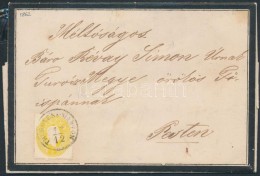 1862
Méltóságos
Báró Révay Simon Urnak
Turócz Megye örökös Fő
ispánnak
Pesten